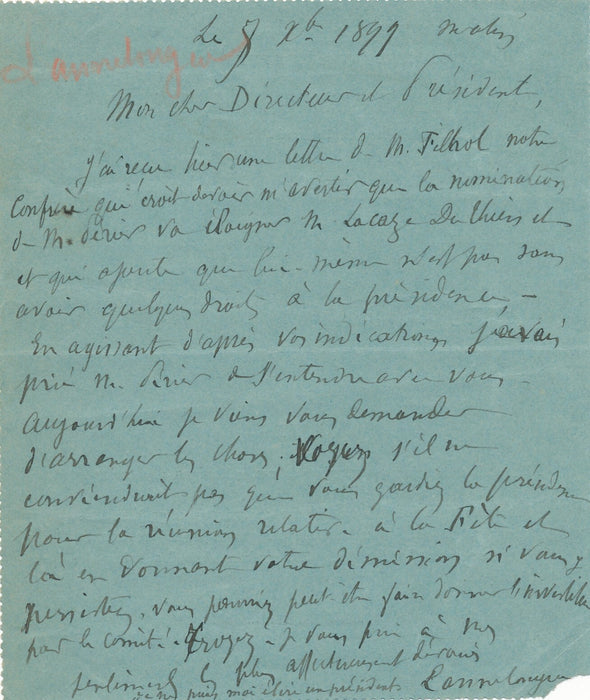 Le 7 Xb 1899 matin
Lannelongue
Mon cher Directeur et Président,
J'ai reçu hier une lettre de M. Filhol notre
Confrère qui croit devoir m'avertir que la nomination
de M. Périer va éloigner M. Lacaze Duthiers et
et qui ajoute que lui-même n'est pas sans
avoir quelques droits à la présidence, –
En agissant d'après vos indications j'avais
prié M. Périer de s'entendre avec vous –
Aujourd'hui je viens vous demander
d'arranger les choses. Voyez s'il ne
conviendrait pas que vous gardiez la présidence
pour la réunion relative à la Fête et
là en donnant votre démission si vous y
persistez, vous pourriez peut être faire donner l'investiture
par le comité. Croyez – je vous prie à mes
sentiments les plus affectueusement dévoués
Lannelongue